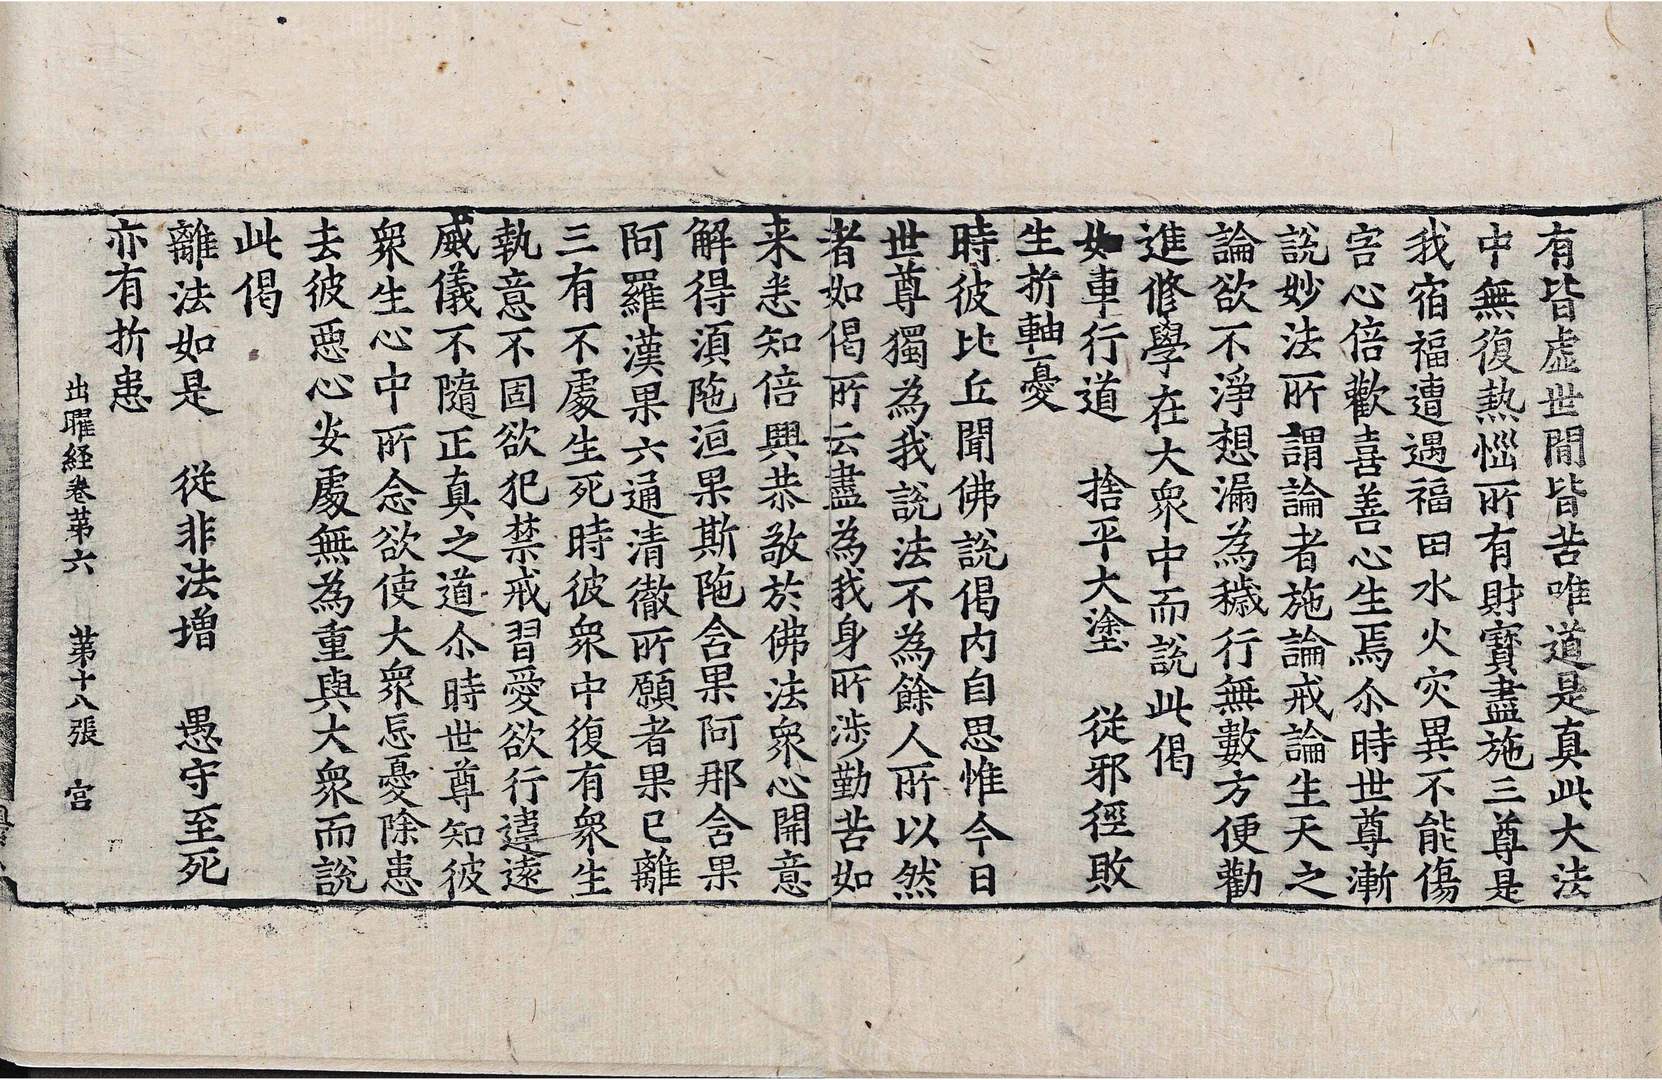 有皆虛世間皆苦唯道是真此大法
中無復熱惱所有財寶盡施三尊是
我宿福遭遇福田水火灾異不能傷
害心倍歡喜善心生焉尒時世尊漸
說妙法所謂論者施論戒論生天之
論欲不淨想漏為穢行無數方便勸
進修學在大衆中而説此偈
如車行道　捨平大塗　從邪徑敗
生折軸憂
時彼比丘聞佛說偈内自思惟今日
世尊獨為我説法不為餘人所以然
者如偈所云盡為我身所涉勤苦如
来悉知倍興恭敬於佛法衆心開意
解得須陁洹果斯陁含果阿那含果
阿羅漢果六通清徹所願者果已離
三有不處生死時彼衆中復有衆生
執意不固欲犯禁戒習愛欲行違遠
威儀不隨正真之道尒時世尊知彼
衆生心中所念欲使大衆忘憂除患
去彼惡心安處無為重與大衆而説
此偈
離法如是　從非法增　愚守至死
亦有折患
出曜経卷苐六　苐十八張　宫